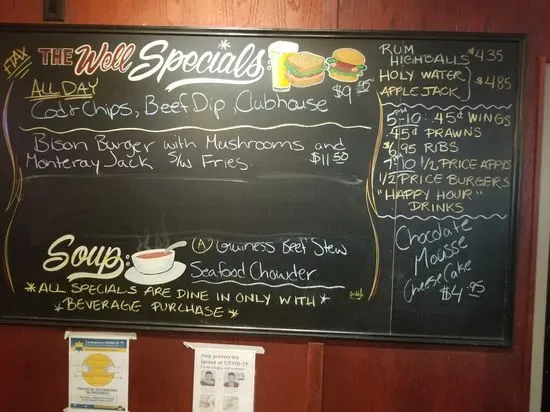 +TAX
THE Well Specials:
ALL DAY
Cod+Chips, Beef Dip, Clubhouse
$9.95
Bison Burger with Mushrooms and
Monteray Jack S/W Fries. $11.50
Soup:
(A) Guinness Beef Stew
Seafood Chowder
*ALL SPECIALS ARE DINE IN ONLY WITH*
*BEVERAGE PURCHASE*
RUM
HIGHBALLS $4.35
HOLY WATER
APPLE JACK
$4.85
5-10: 45¢ WINGS
45¢ PRAWNS
$6.95 RIBS
7-10 1/2 PRICE APPYS
1/2 PRICE BURGERS
"HAPPY HOUR"
DRINKS
Chocolate
Mousse
CheeseCake
$4.95
PHYSICAL DISTANCING
IN PROGRESS
Help prevent the
spread of COVID-19